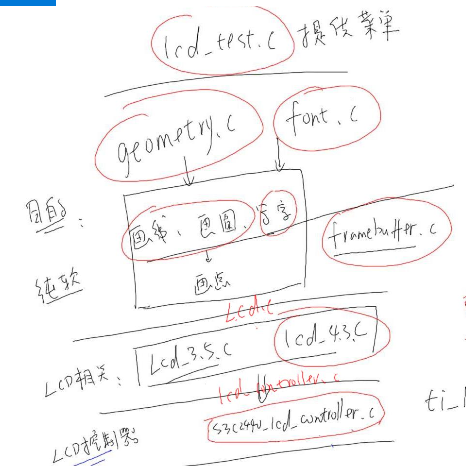 lcd_test.c 提供菜单
geometry.c font.c
目的：
画线、画圆、写字
framebuffer.c
纯软
画点
Lcd.c
LCD相关： Lcd_3.5.c lcd_4.3.c
lcd_controller.c
LCD控制器 S3C2440_lcd_controller.c